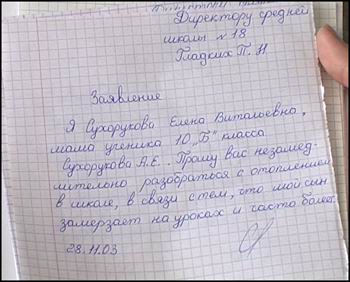 Директору средней
школы №18
Гладких П. Н
Заявление
Я Сухорукова Елена Витальевна,
мама ученика 10 „Б" класса
Сухорукова А.Е.. Прошу вас незамед-
лительно разобраться с отоплением
в школе, в связи с тем, что мой сын
замерзает на уроках и часто болеет.
28.11.03